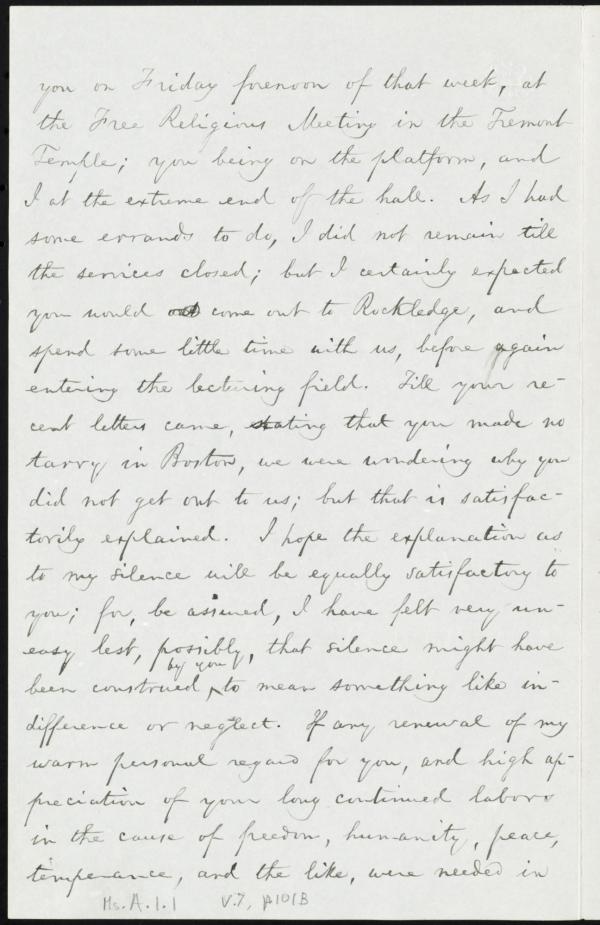 you on Friday forenoon of that week, at
the Free Religious Meeting in the Tremont
Temple; you being on the platform, and
I at the extreme end of the hall. As I had
some errands to do, I did not remain till
the services closed; but I certainly expected
you would come out to Rockledge, and
spend some little time with us, before again
entering the lecturing field. Till your re-
cent letters came, stating that you made no
tarry in Boston, we were wondering why you
did not get out to us; but that is satisfac-
torily explained. I hope the explanation as
to my silence will be equally satisfactory to
you; for, be assured, I have felt very un-
easy lest, possibly, that silence might have
been construed by you, to mean something like in-
difference or neglect. If any renewal of my
warm personal regard for you, and high ap-
preciation of your long continued labors
in the cause of freedom, humanity, peace,
temperance, and the like, were needed in
Ms. A. 1. 1 V. 7, p101B